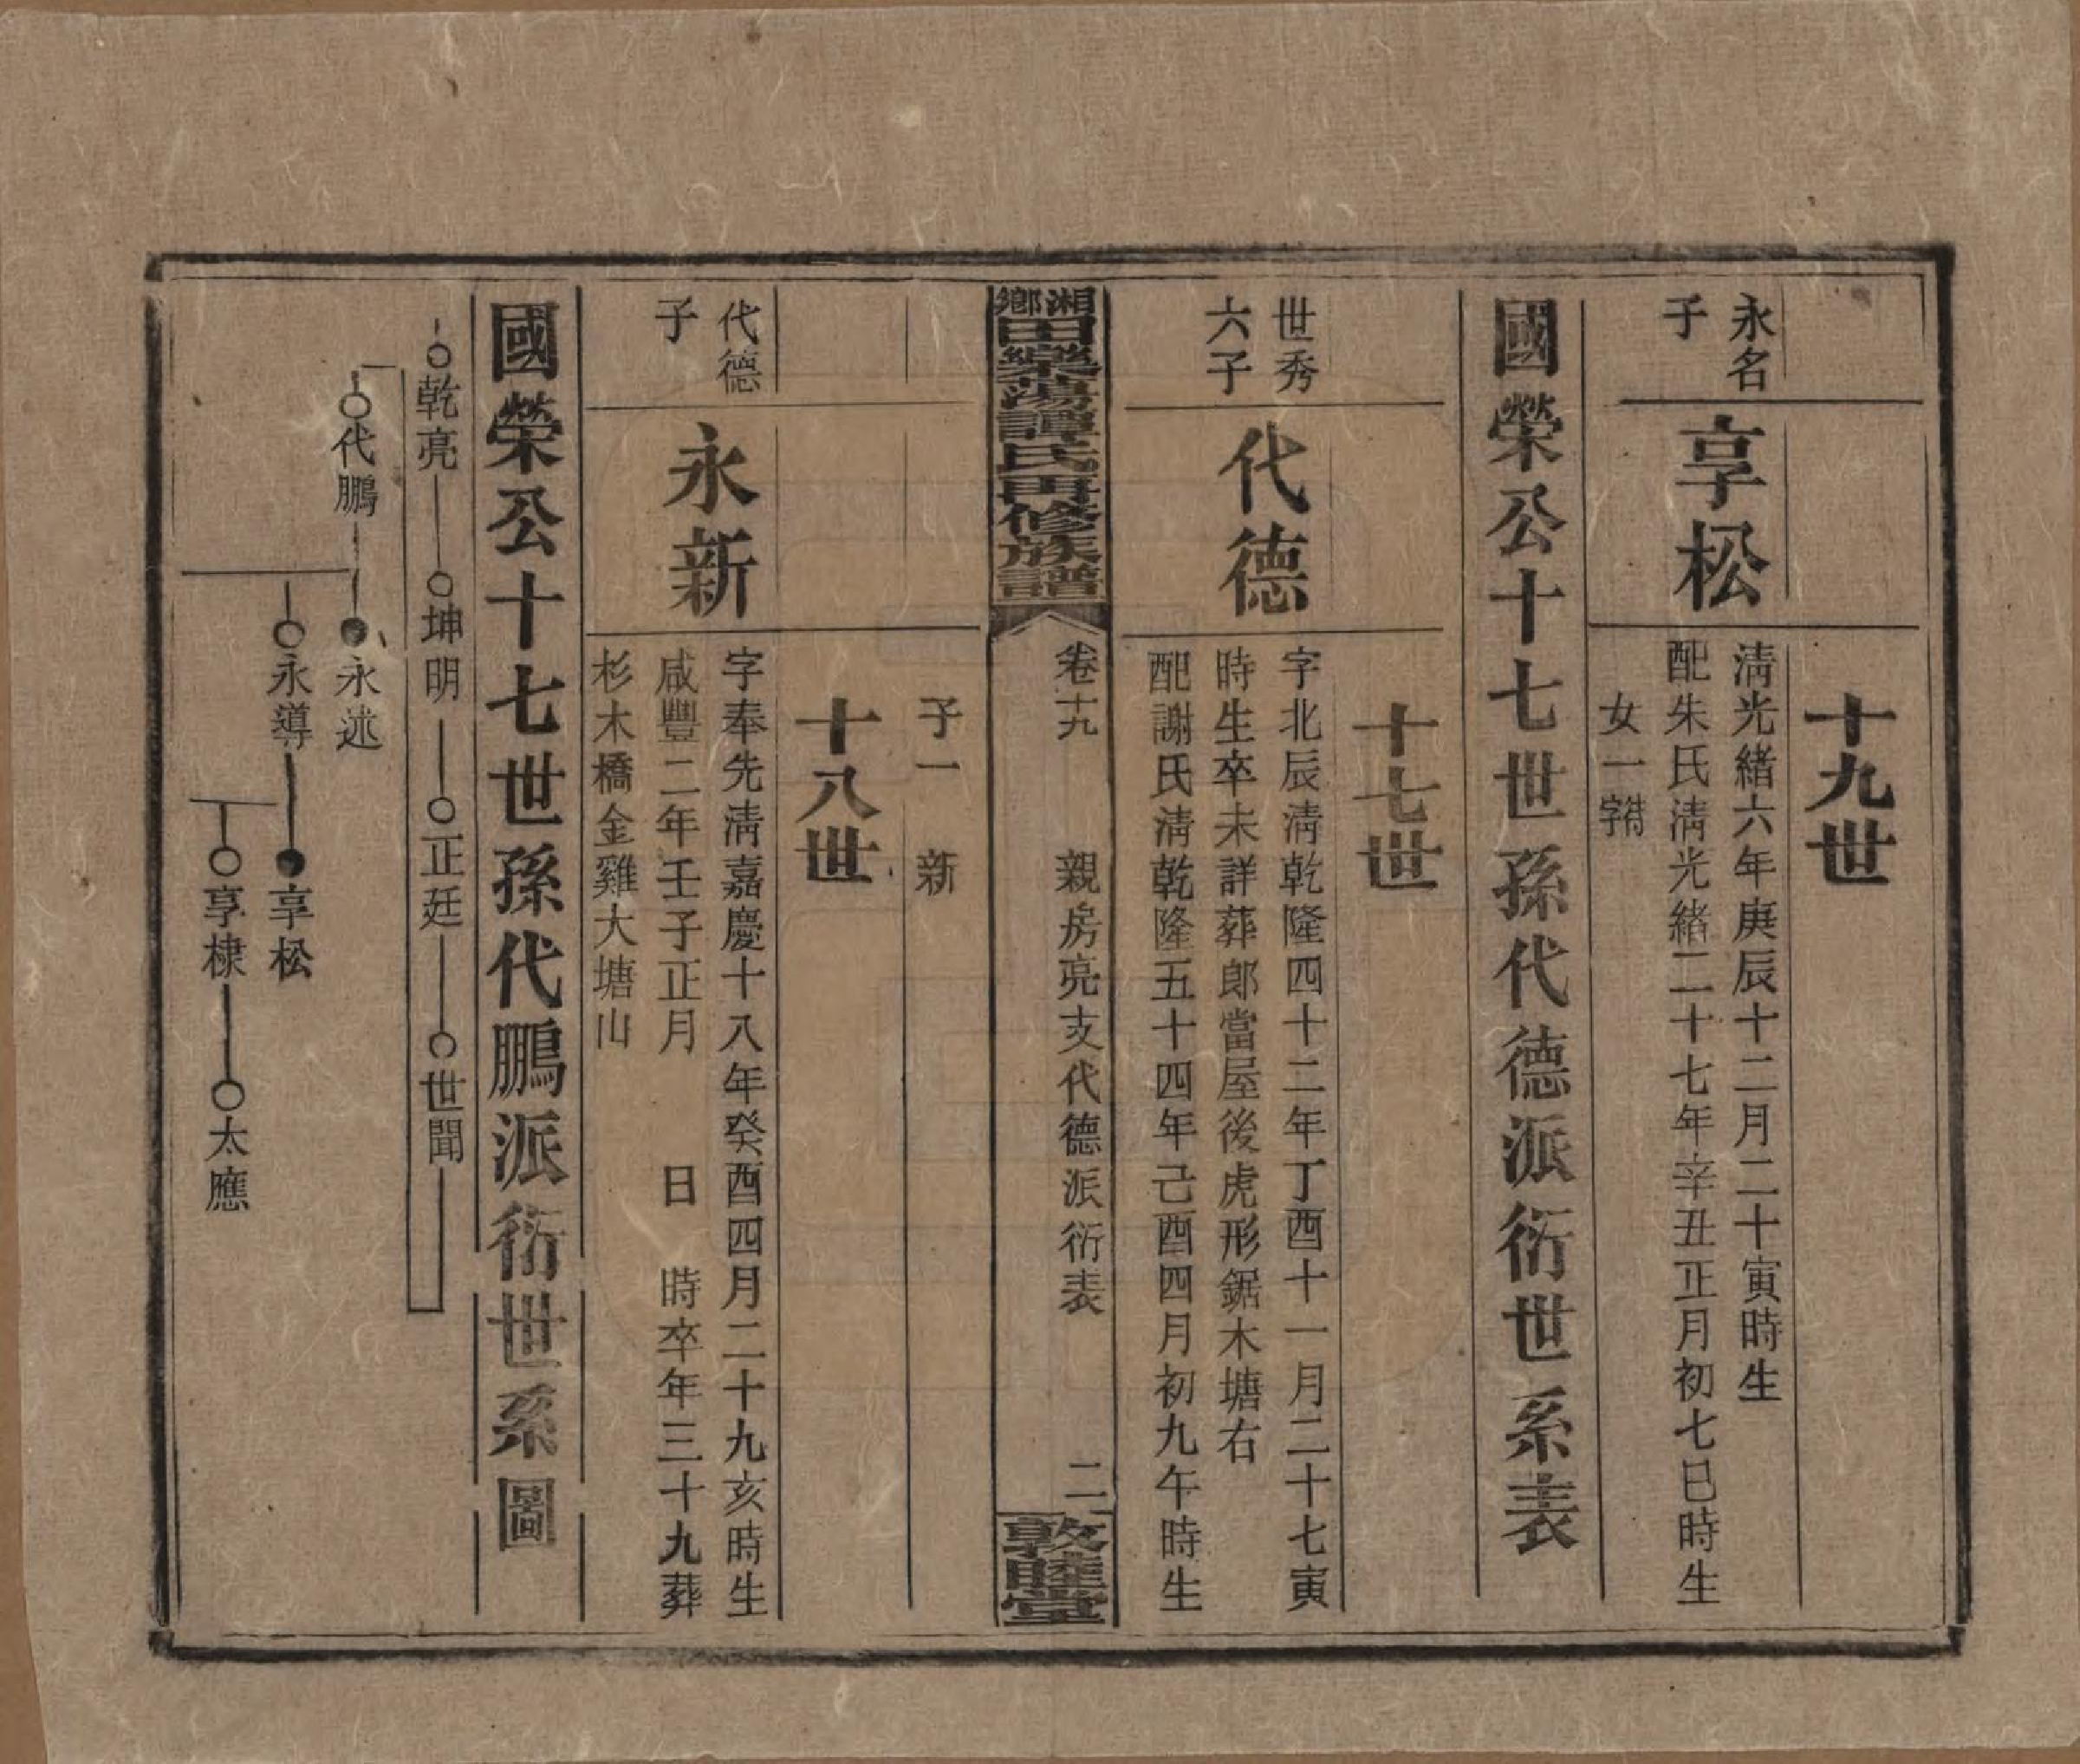 十九世
永名
子
享松
清光緒六年庚辰十二月二十寅時生
配朱氏清光緒二十七年辛丑正月初七巳時生
女一字
國榮公十七世孫代德派衍世系表
十七世
世秀
六子
代德
字北辰清乾隆四十二年丁酉十一月二十七寅
時生卒未詳葬郎當屋後虎形鋸木塘右
配謝氏清乾隆五十四年己酉四月初九午時生
湘鄉田樂蕩譚氏再修族譜
卷十九
親房亮支代德派衍表
二
敦睦堂
子一 新
十八世
代德
子
永新
字奉先清嘉慶十八年癸酉四月二十九亥時生
咸豐二年壬子正月 日 時卒年三十九葬
杉木橋金雞大塘山
國榮公十七世孫代鵬派衍世系圖
乾亮 坤明 正廷 世聞
代鵬 永述
永導 享松
享棣 太應